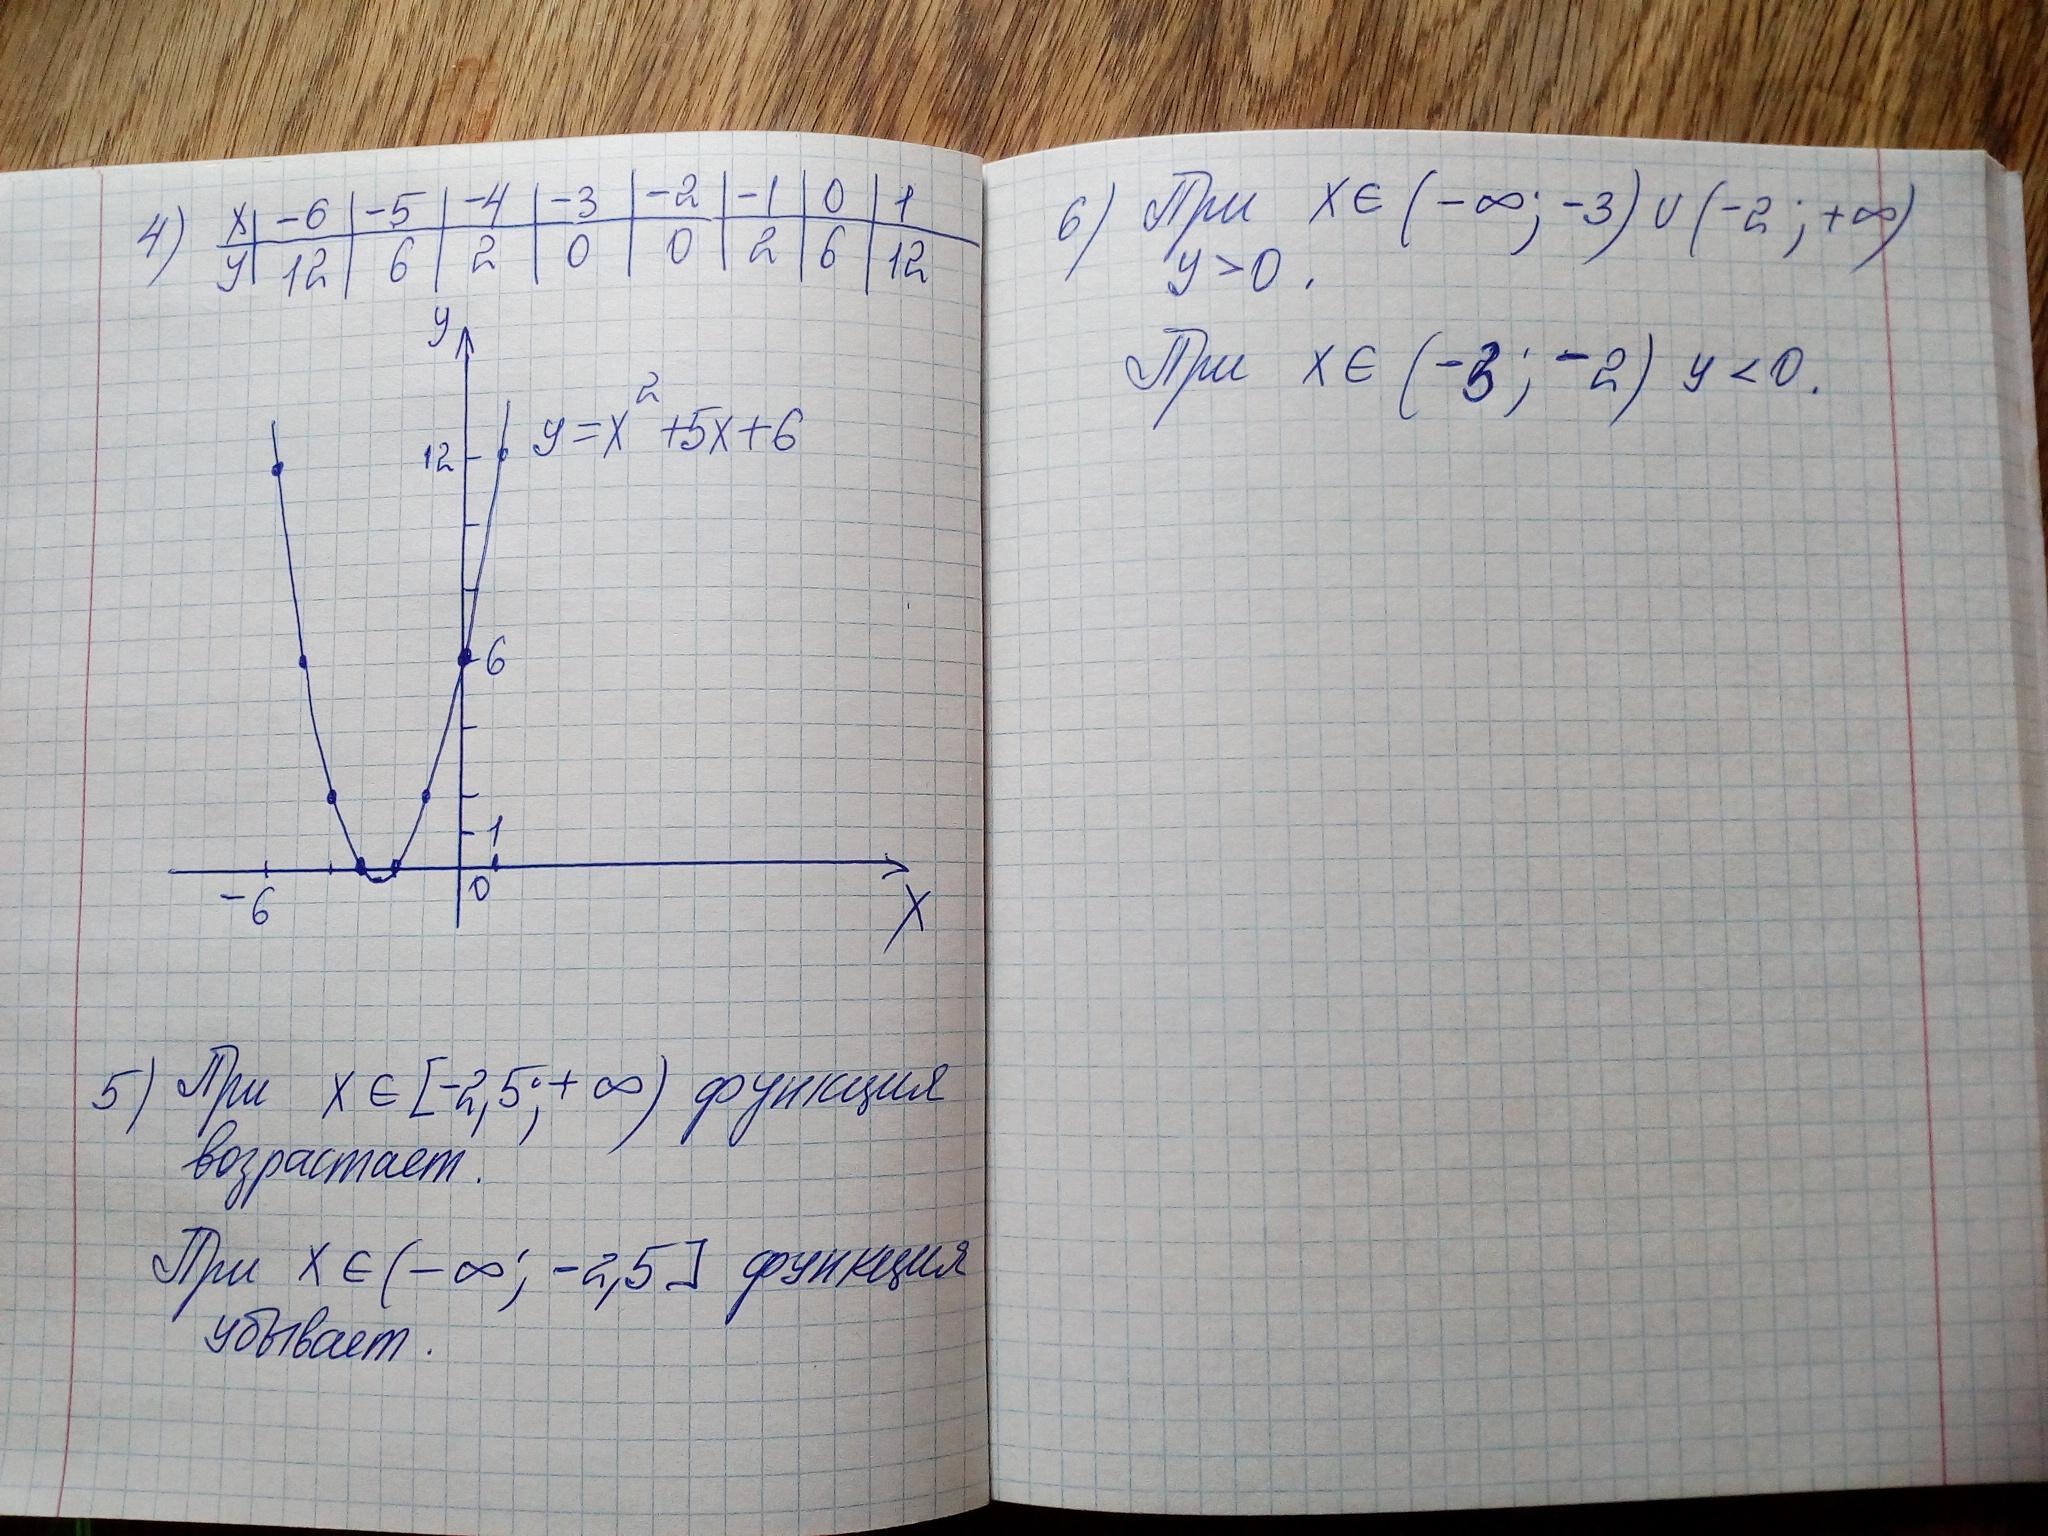 4) x | -6 | -5 | -4 | -3 | -2 | -1 | 0 | 1
y | 12 | 6 | 2 | 0 | 0 | 2 | 6 | 12
y
y=x²+5x+6
12
6
1
-6
0
X
5) При x∈[-2,5;+∞) функция
возрастает.
При x∈(-∞; -2,5] функция
убывает.
6) При x∈(-∞; -3)∪(-2;+∞)
y>0.
При x∈(-3; -2) y<0.